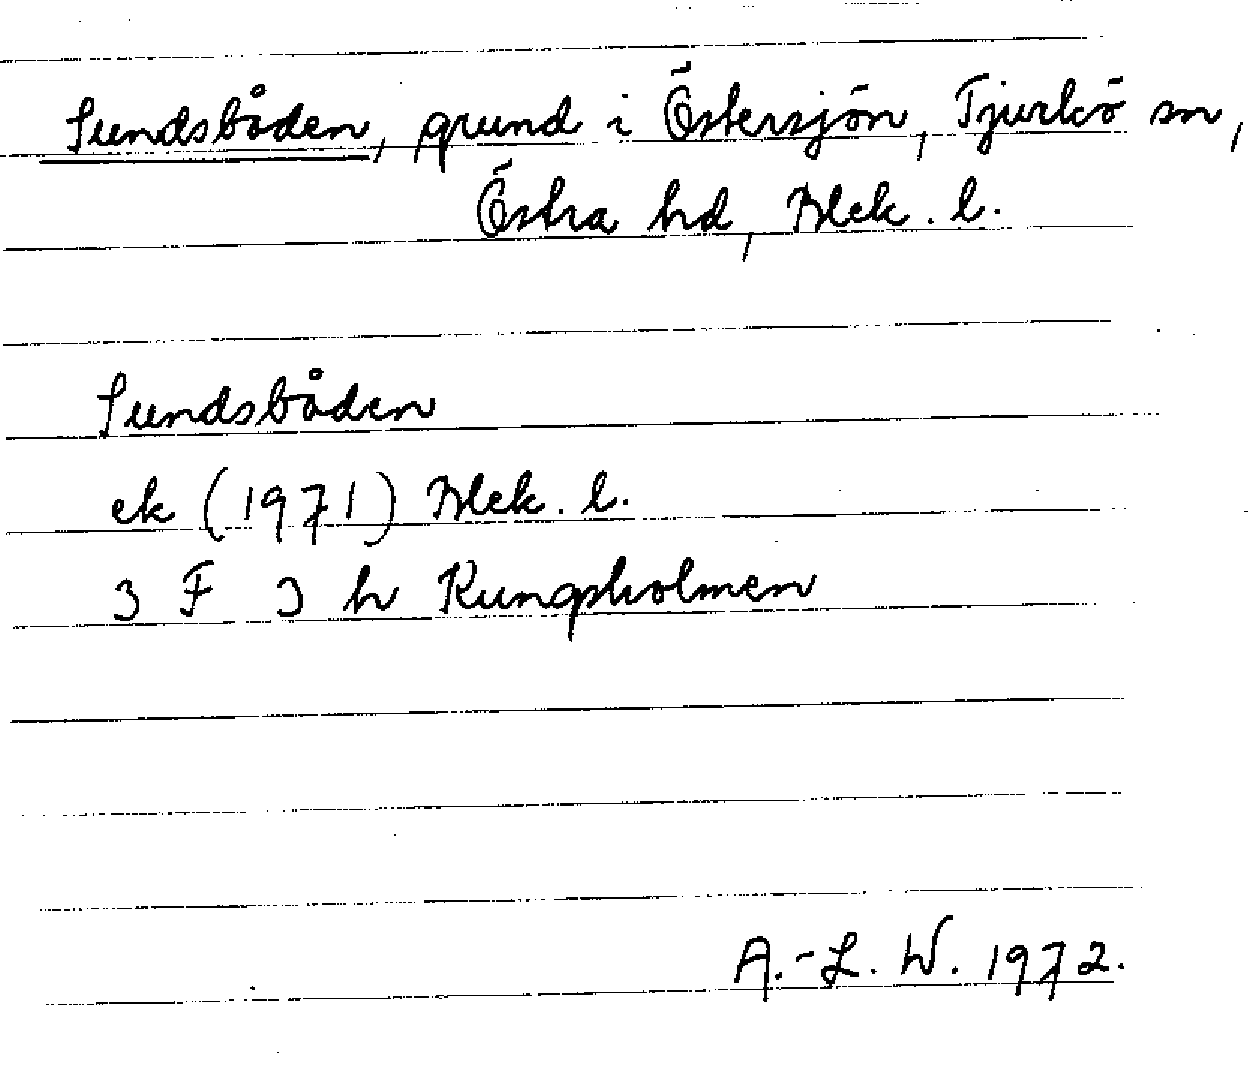 Sundsbåden, grund i Östersjön, Tjurkö sn,
Östra hd, Blek. l.
Sundsbåden
ek (1971) Blek. l.
3 F 3 h Kungsholmen
A.-L. W. 1972.